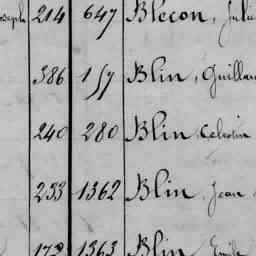 oseph 214 647 Blecon, Julie
386 157 Blin, Guillau
240 280 Blin, Celestin
233 1362 Blin, Jean
173 1363 Blin, Emile